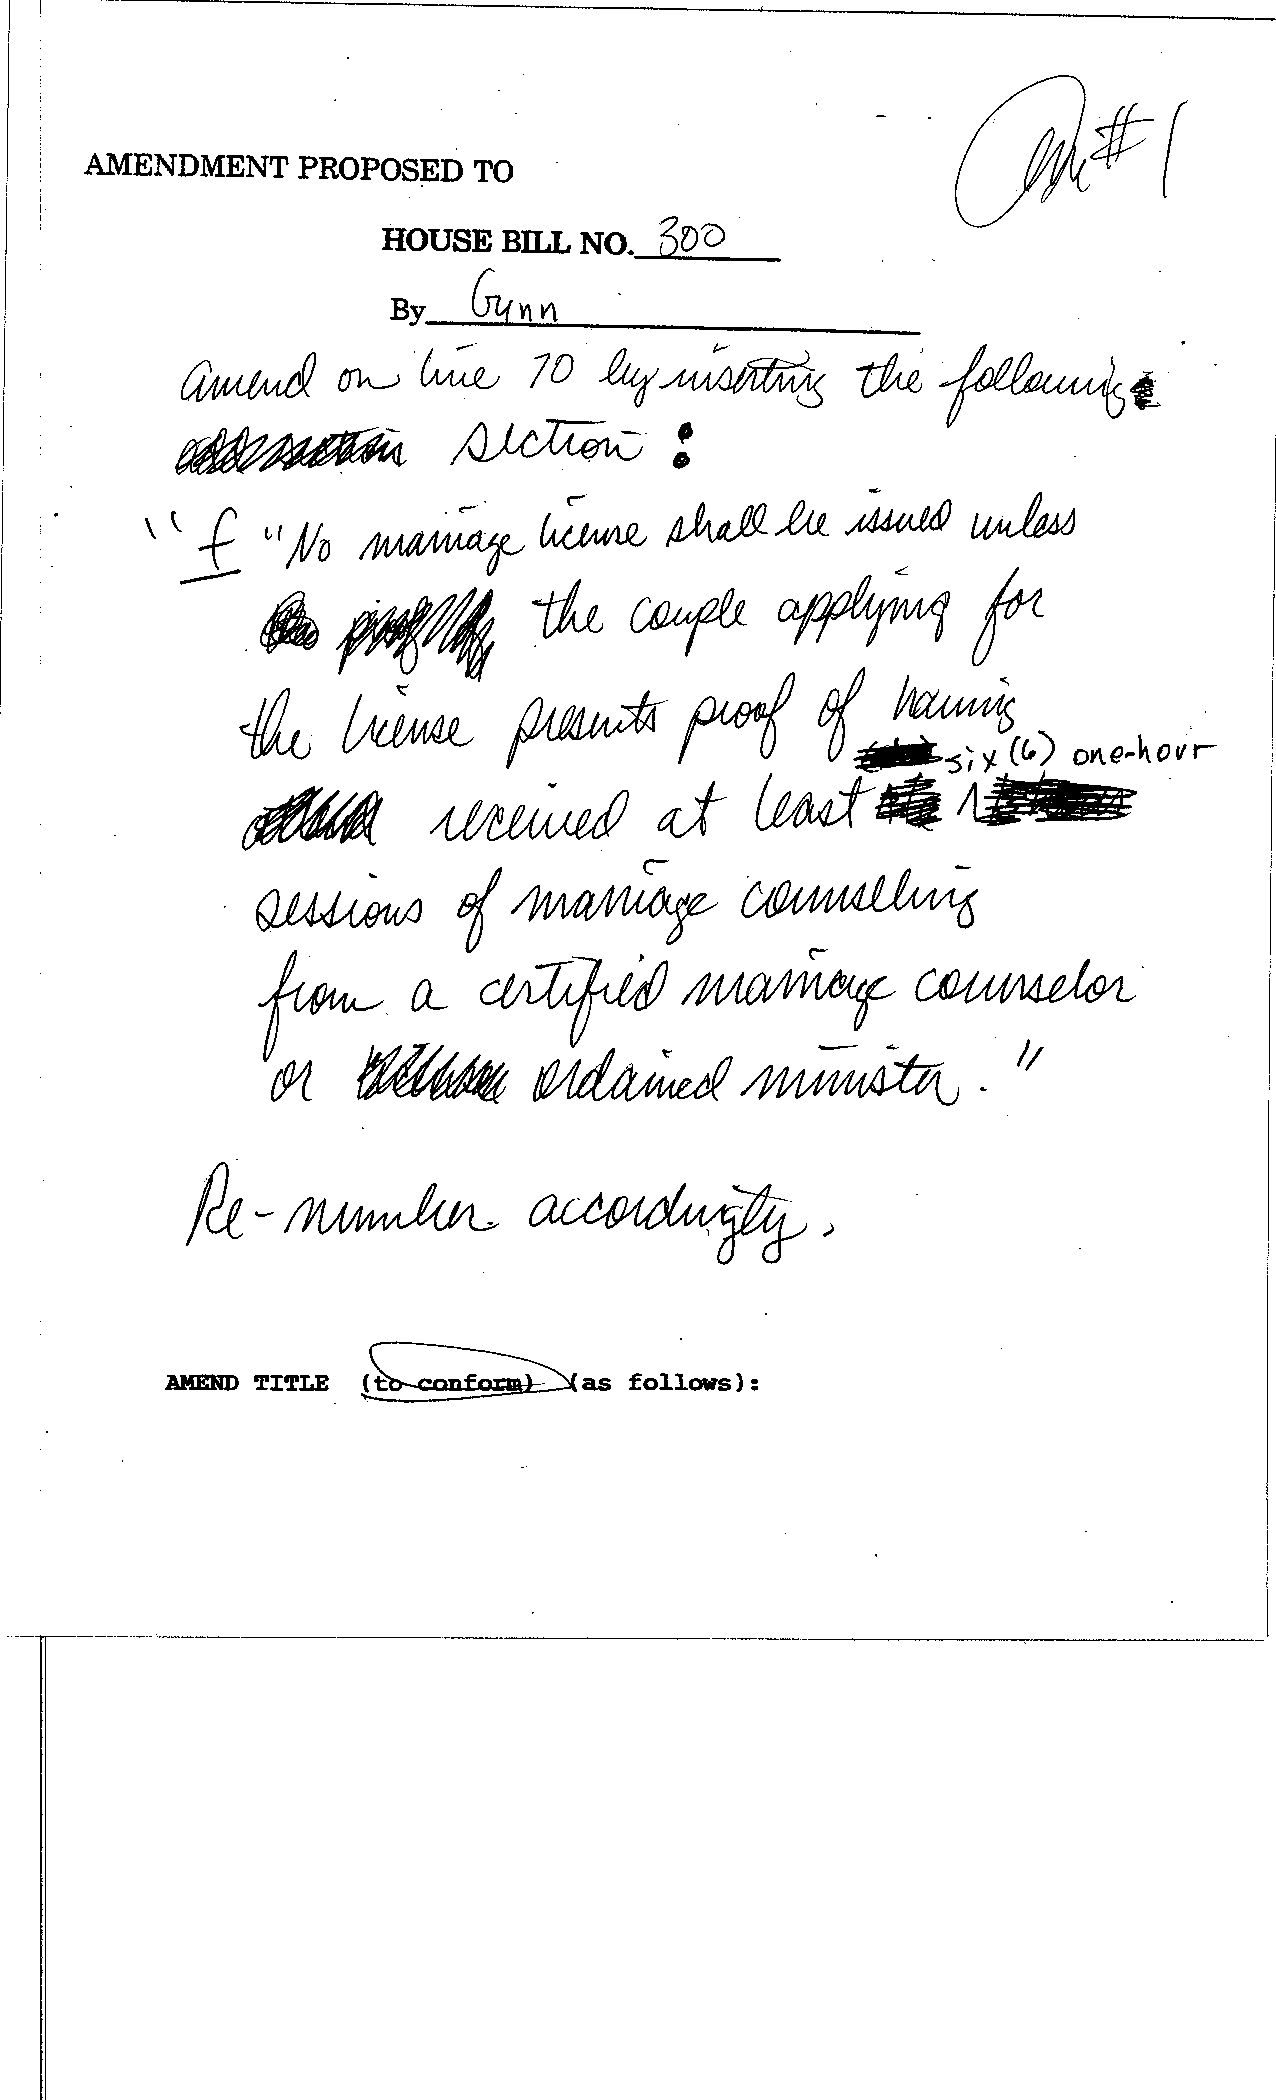 Am #1
AMENDMENT PROPOSED TO
HOUSE BILL NO. 300
By Gunn
Amend on line 70 by inserting the following
section:
"f "No marriage license shall be issued unless
the couple applying for
the license presents proof of having
six (6) one-hour
received at least
sessions of marriage counseling
from a certified marriage counselor
or ordained minister."
Re-number accordingly.
AMEND TITLE (to conform) (as follows):